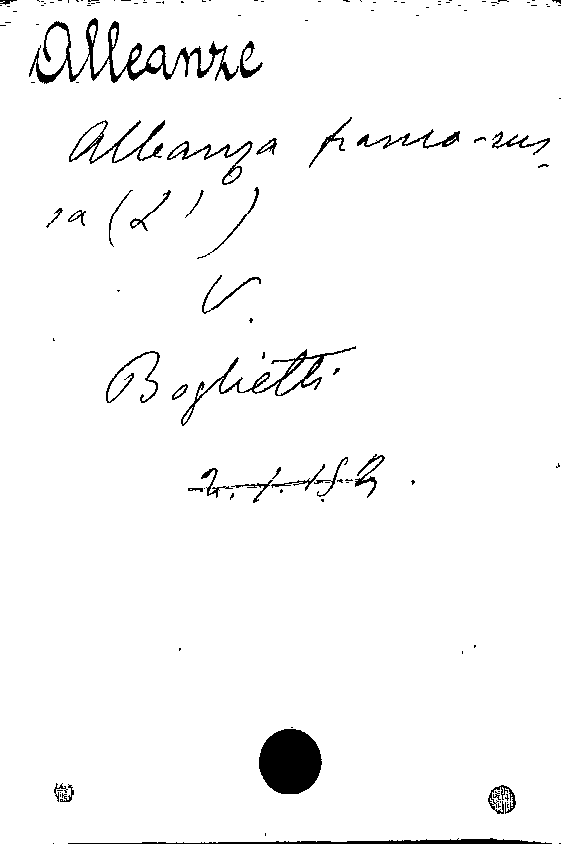 Alleanze
Alleanza franco-rus-
sa (L')
V.
Boglietti
2.1.15.2.